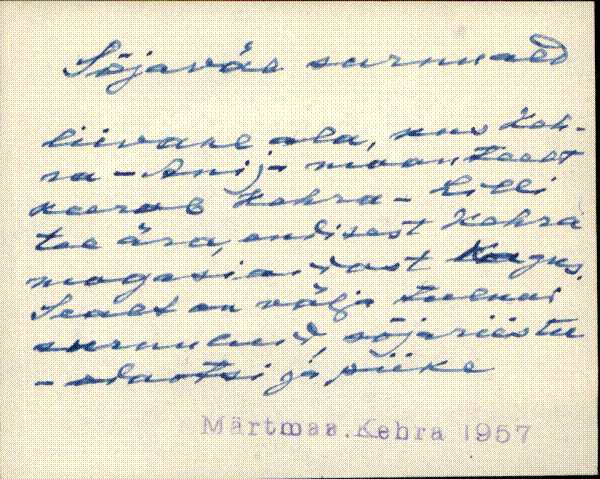 Sõjaväe surnuaed
liivane ala, kus Keh-
ra - Anija maanteest
keerab Kehra - Lilli
tee ära, endisest Kehra
magasiaidast kagus.
Sealt on välja tulnud
surnuluid, sõjariistu
- odaotsi ja piike
Märtmaa. Kehra 1957